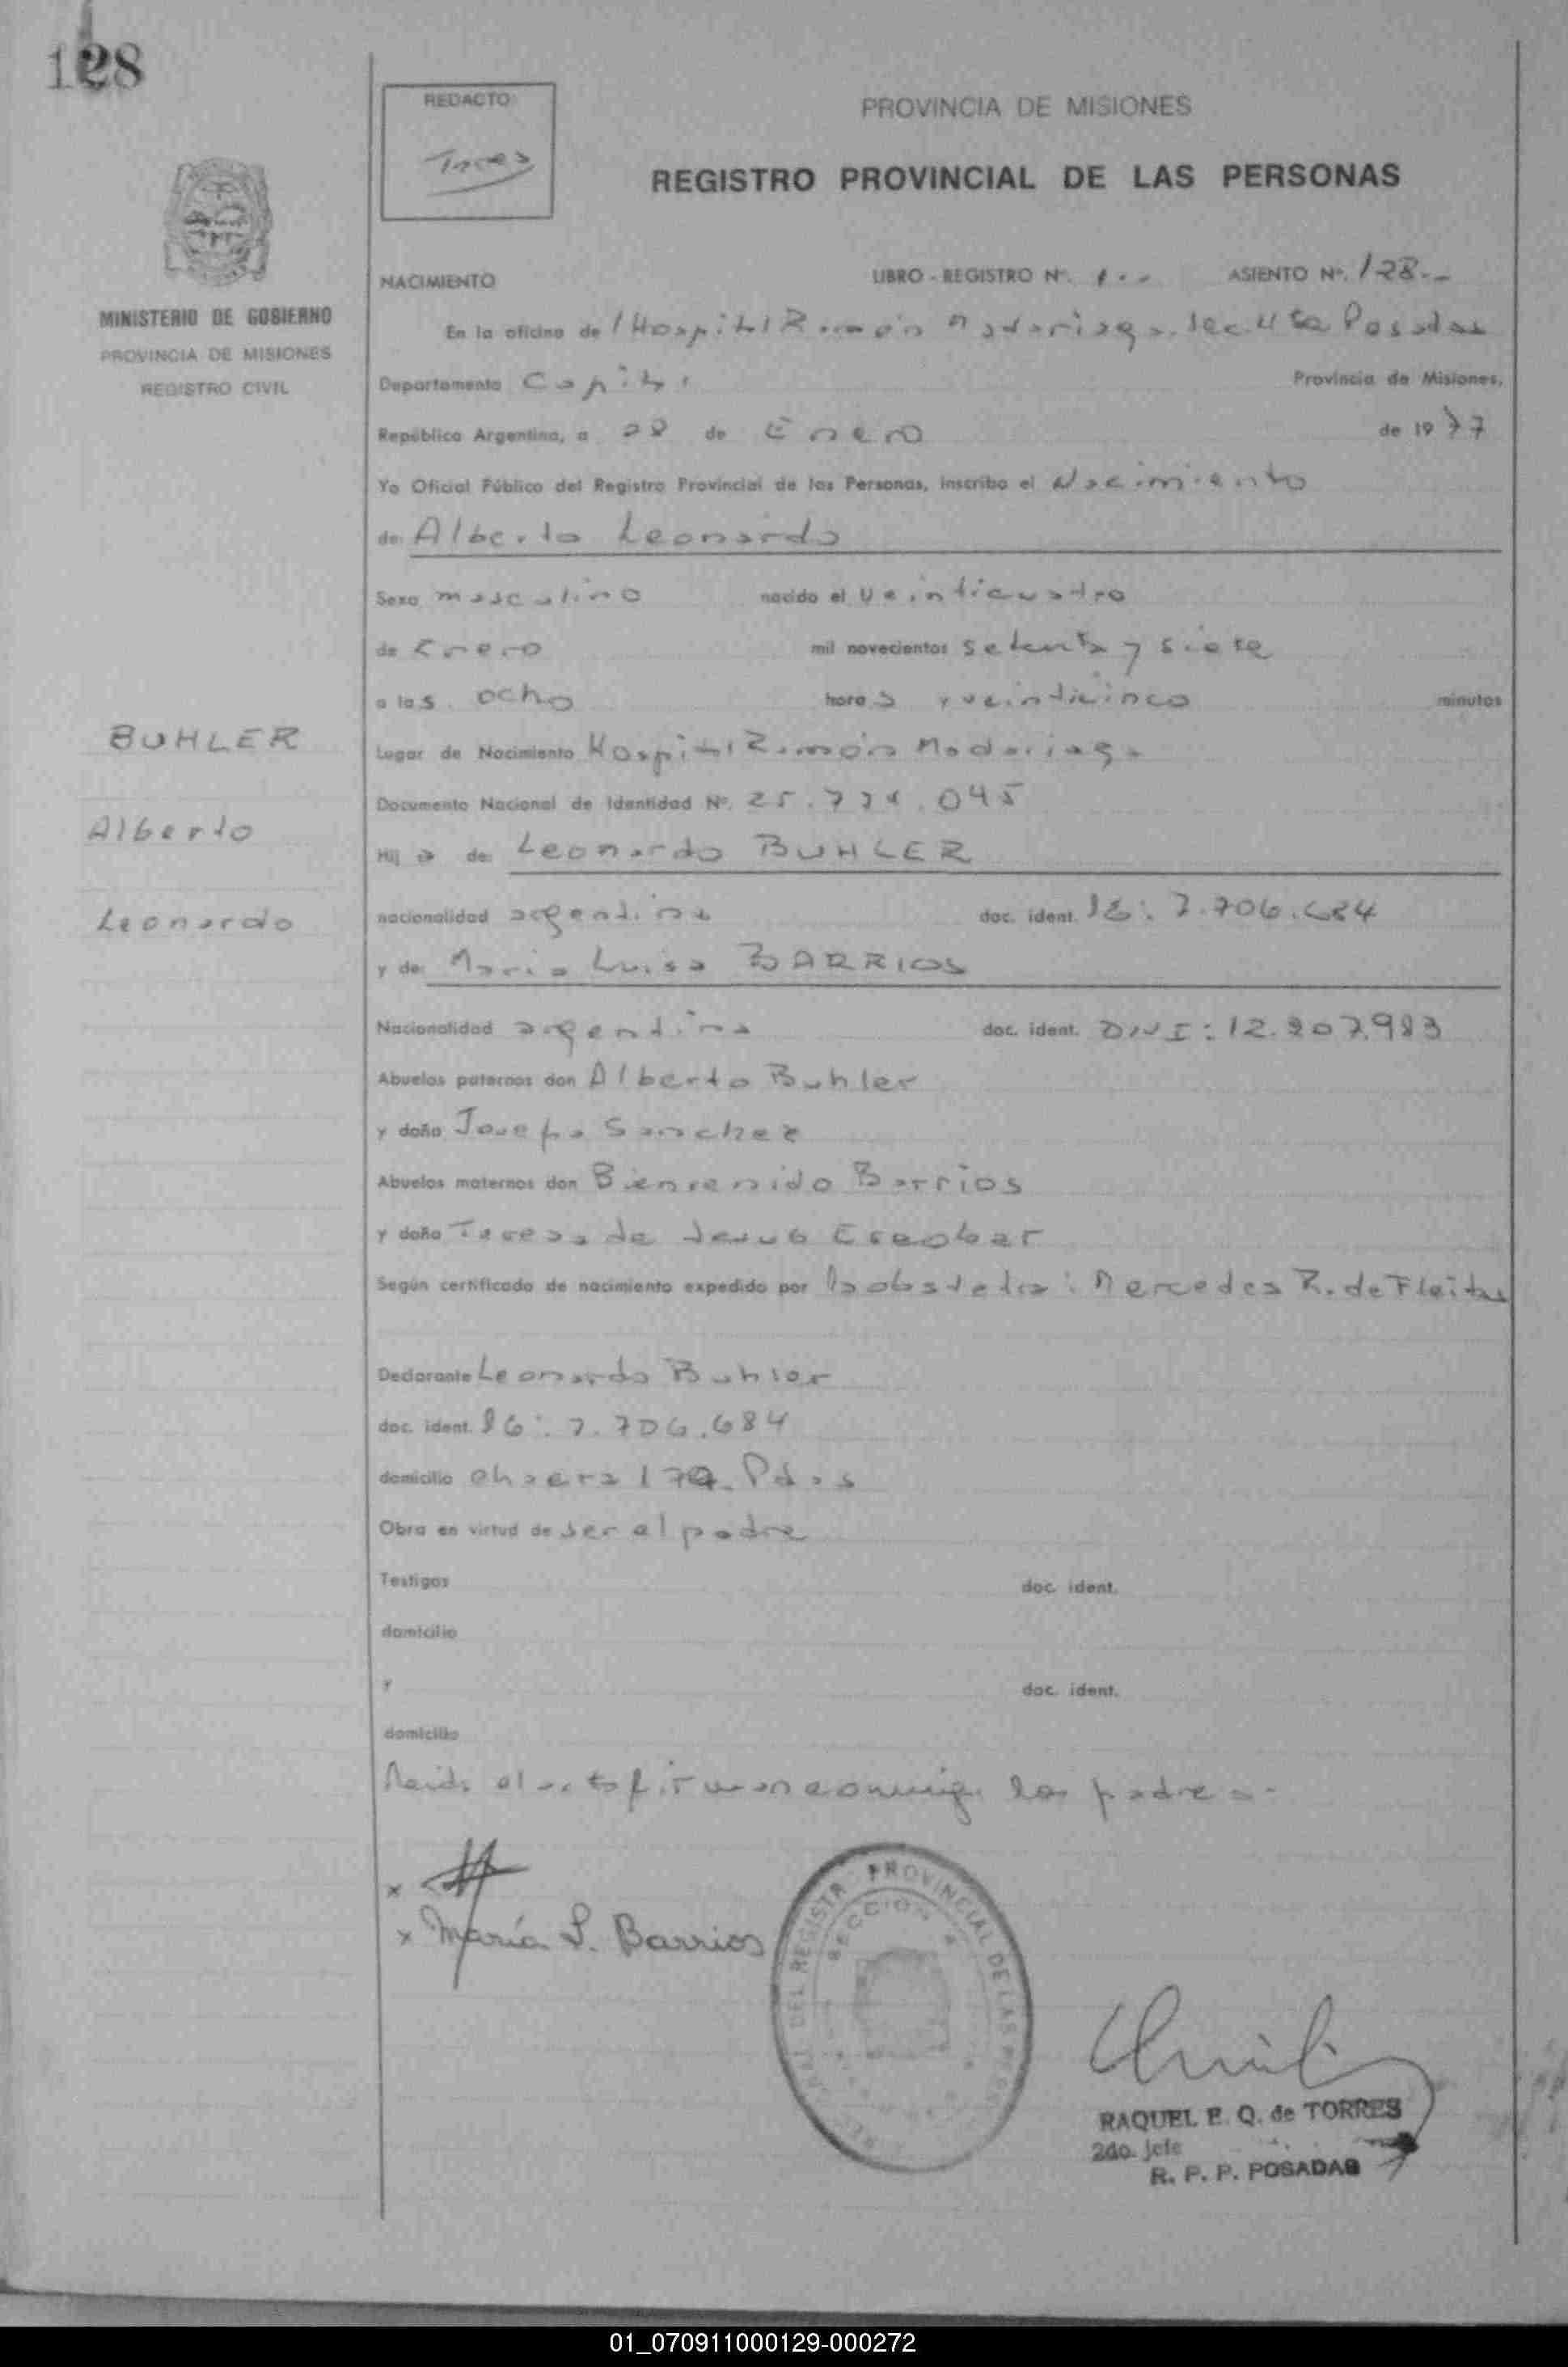 128
REDACTO:
Torres
PROVINCIA DE MISIONES
REGISTRO PROVINCIAL DE LAS PERSONAS
MINISTERIO DE GOBIERNO
PROVINCIA DE MISIONES
REGISTRO CIVIL
NACIMIENTO LIBRO - REGISTRO Nº. 1 ASIENTO Nº. 128
En la oficina de Hospital Ramón Madariaga Posadas
Departamento Capital Provincia de Misiones,
República Argentina, a 28 de Enero de 1977
Yo Oficial Público del Registro Provincial de las Personas, inscribo el Nacimiento
de: Alberto Leonardo
Sexo masculino nacido el veinticuatro
de Enero mil novecientos setenta y siete
a las ocho horas y veinticinco minutos
BUHLER
Alberto
Leonardo
Lugar de Nacimiento Hospital Ramón Madariaga
Documento Nacional de Identidad Nº. 25. .045
Hijo de: Leonardo BUHLER
nacionalidad argentina doc. ident. 7.706.684
y de: Maria Luisa BARRIOS
Nacionalidad argentina doc. ident. DNI: 12.207.983
Abuelos paternos don Alberto Buhler
y doña Josefa Sanchez
Abuelos maternos don Bienvenido Barrios
y doña Teresa de Jesus Escobar
Según certificado de nacimiento expedido por la obstetra: Mercedes R. de Fleitas
Declarante Leonardo Buhler
doc. ident. 7.706.684
domicilio chacra Pdas
Obra en virtud de ser el padre
Testigos doc. ident.
domicilio
y doc. ident.
domicilio
Leida el acta firman conmigo los padres.-
x
x María L. Barrios
DEL REGISTRO PROVINCIAL DE LAS
SECCION
RAQUEL E. Q. de TORRES
2do. Jefe
R. P. P. POSADAS
01_070911000129-000272